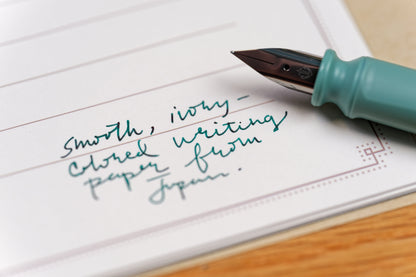 smooth, ivory-
colored writing
paper from
Japan.